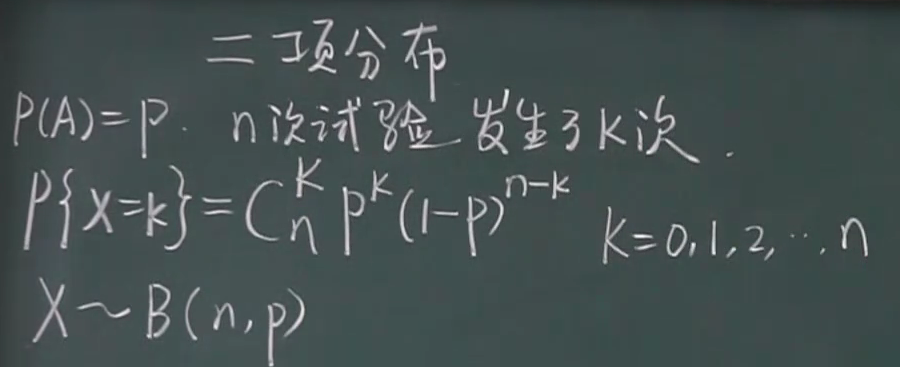 二项分布
P(A)=p. n次试验发生了K次.
P{X=k}=C_n^K p^k (1-p)^{n-k} K=0,1,2,…,n
X~B(n,p)